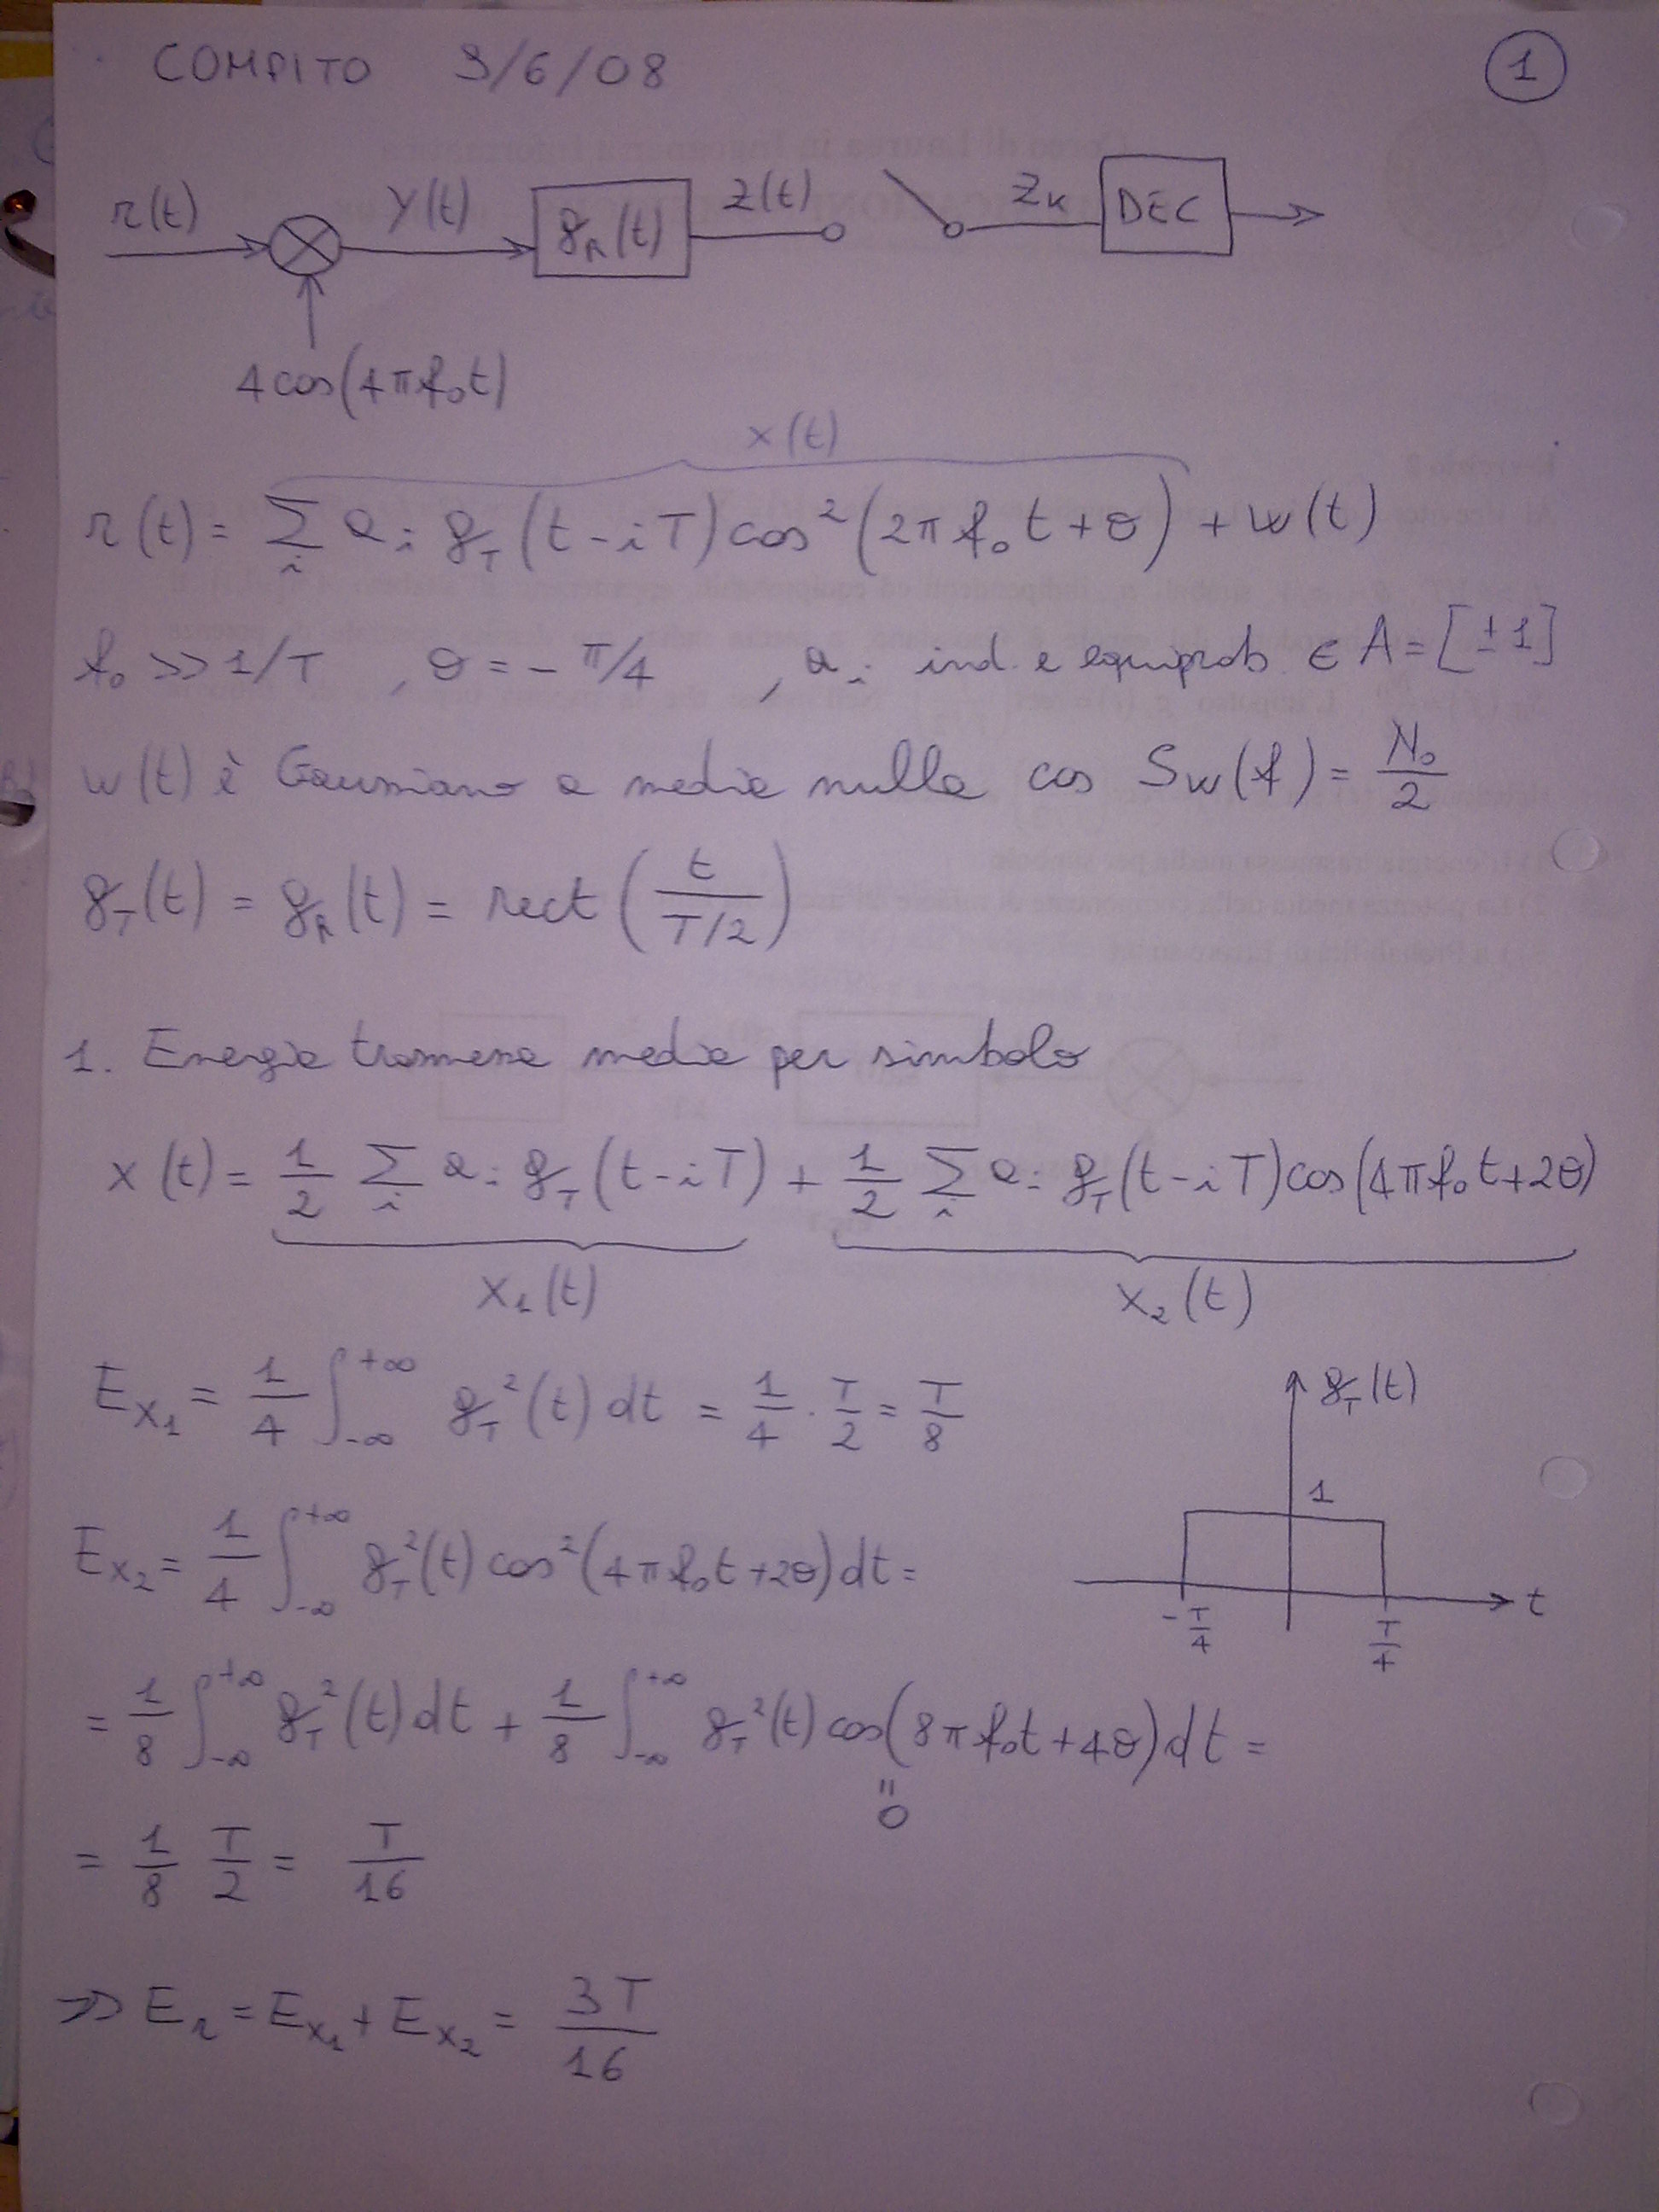 COMPITO 3/6/08
1
r(t) y(t) g_R(t) z(t) z_k DEC
4cos(4πf₀t)
x(t)
r(t) = Σ_i a_i g_T(t-iT)cos²(2πf₀t+θ) + w(t)
f₀ >> 1/T , θ = -π/4 , a_i ind. e equiprob. ∈ A = [±1]
w(t) è Gaussiano a media nulla cos S_w(f) = N₀/2
g_T(t) = g_R(t) = rect(t/(T/2))
1. Energia trasmessa media per simbolo
x(t) = 1/2 Σ_i a_i g_T(t-iT) + 1/2 Σ_i a_i g_T(t-iT)cos(4πf₀t+2θ)
x₁(t) x₂(t)
E_x₁ = 1/4 ∫_{-∞}^{+∞} g_T²(t)dt = 1/4 · T/2 = T/8
g_T(t)
1
-T/4 T/4 t
E_x₂ = 1/4 ∫_{-∞}^{+∞} g_T²(t)cos²(4πf₀t+2θ)dt =
= 1/8 ∫_{-∞}^{+∞} g_T²(t)dt + 1/8 ∫_{-∞}^{+∞} g_T²(t)cos(8πf₀t+4θ)dt =
" 0
= 1/8 T/2 = T/16
=> E_r = E_x₁ + E_x₂ = 3T/16